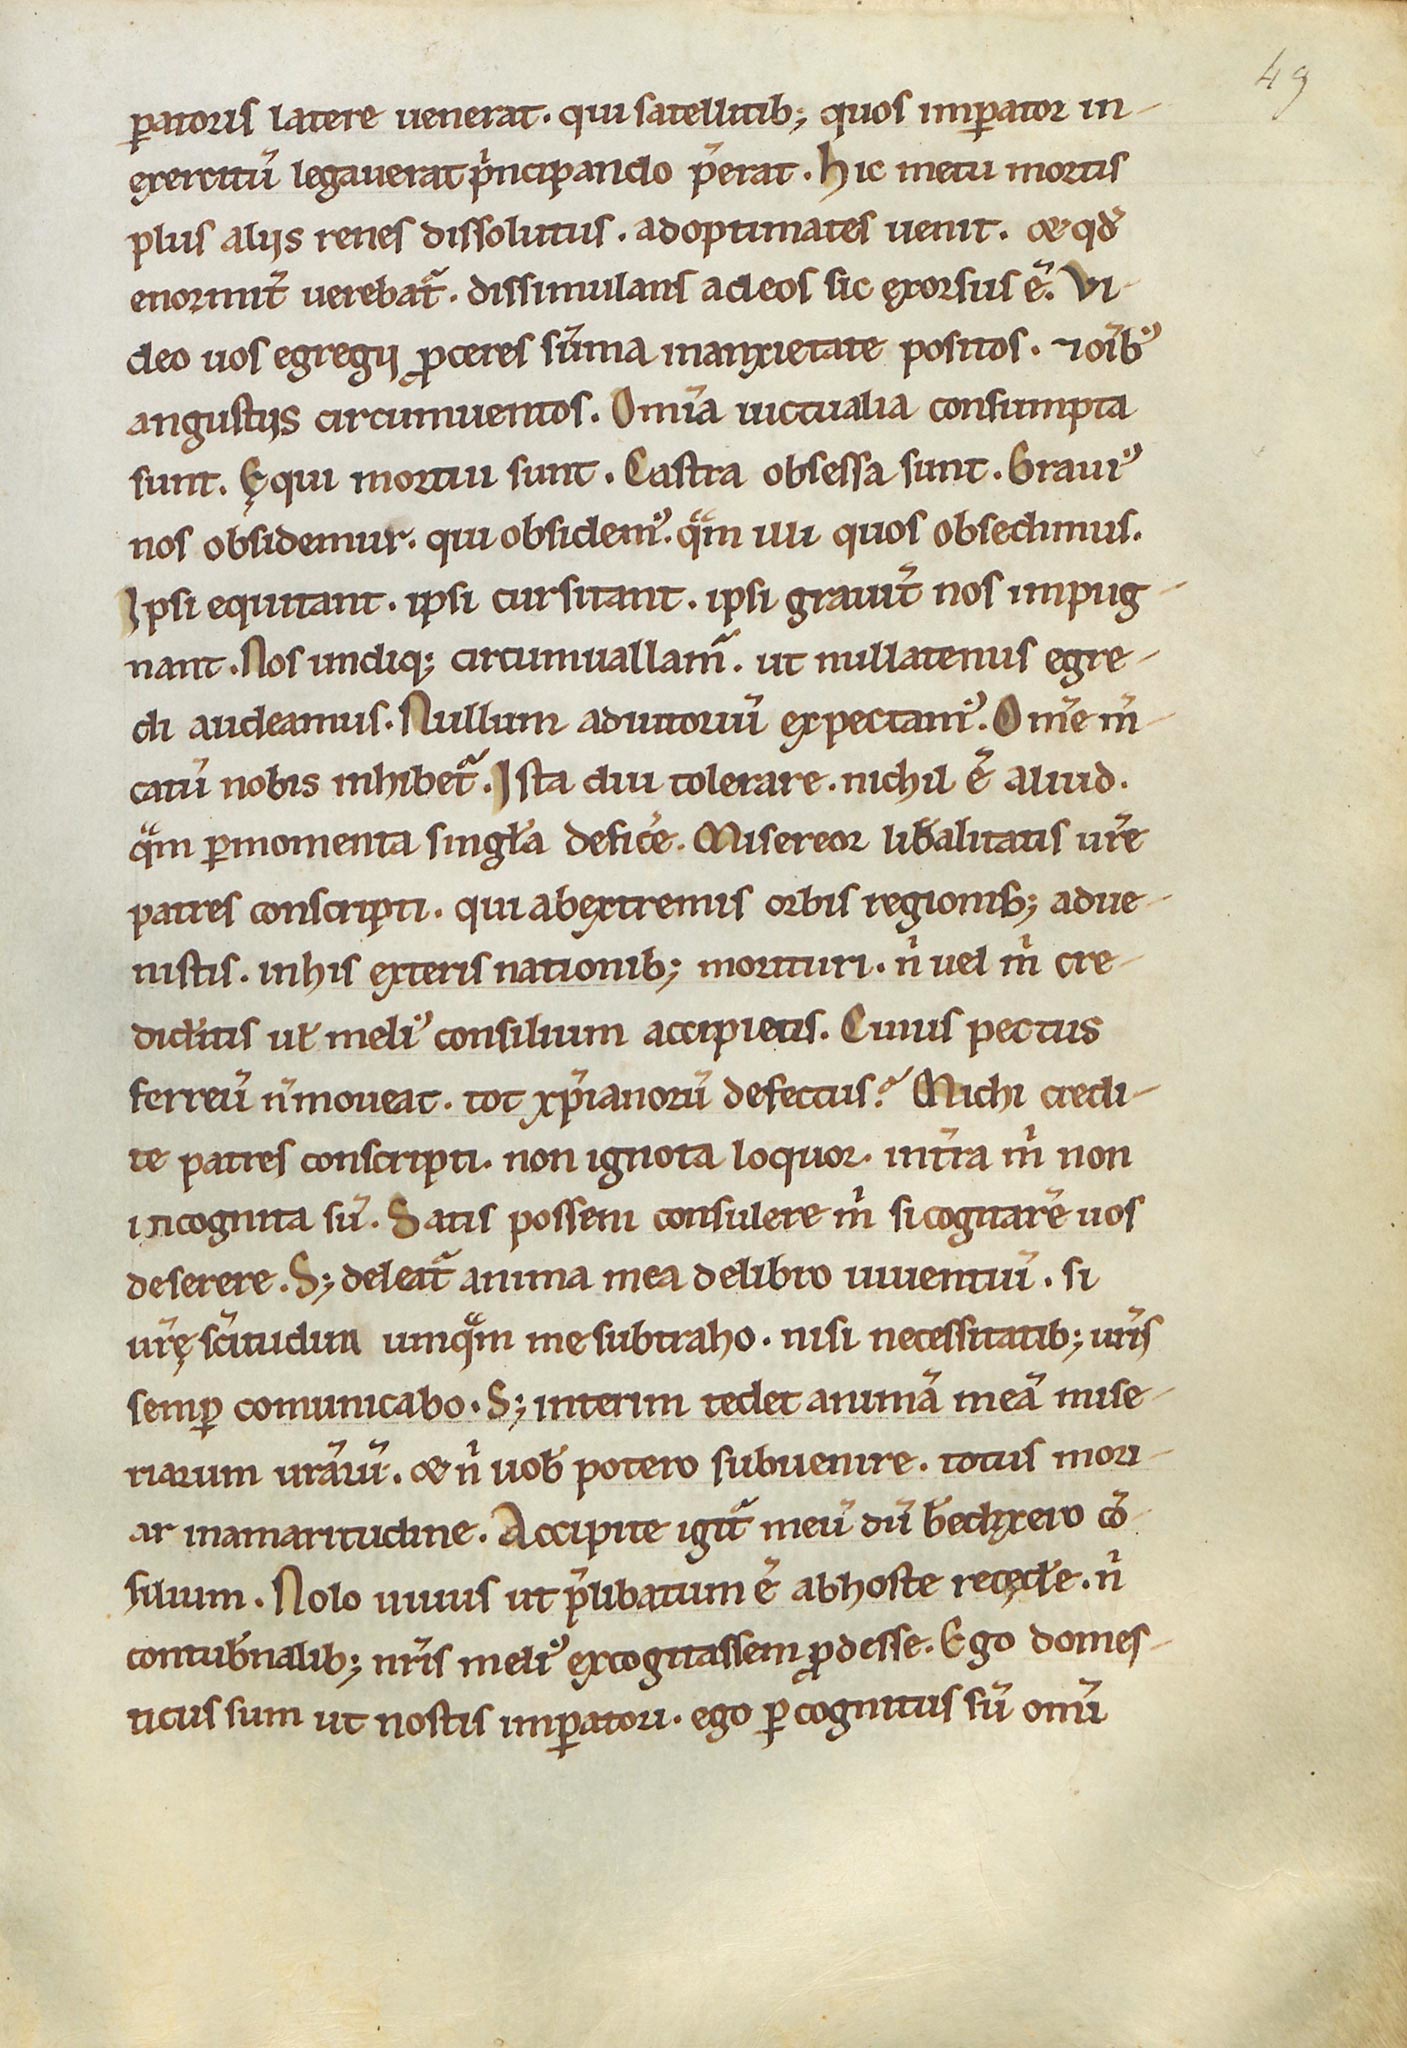 49
ꝑatoris latere uenerat. qui satellitib; quos imꝑator in-
exercitū legauerat p̄ncipando p̄erat. Hic metu mortis
plus aliis renes dissolutus. adoptimates uenit. & qd̄
enormit̄ uerebat̄. dissimulans adeos sic exorsus ē. Vi-
deo uos egregii ꝓceres sūma inanxietate positos. ⁊ oīb᷒
angustiis circumuentos. Om̄ia uictualia consumpta
sunt. Ęqui mortui sunt. Castra obsessa sunt. Graui᷒
nos obsidemur. qui obsidem᷒. qͣm illi quos obsedimus.
Ipsi equitant. ipsi cursitant. ipsi grauit̄ nos impug-
nant. Nos undiq; circumuallam̄. ut nullatenus egre-
di audeamus. Nullum adiutoriū expectam᷒. Om̄e m̄-
catū nobis inhibet̄. Ista diu tolerare. nichil ē aliud.
qͣm ꝑmomenta singl̄a defic̄e. Misereor lib̄alitatis ur̄e
patres conscripti. qui abextremis orbis regionib; adue-
nistis. inhis exteris nationib; morituri. n̍ uel m̍ cre-
did̄itis ul̄ meli᷒ consilium accipietis. Cuius pectus
ferreū n̄moueat. tot xp̄ianorū defectus? Michi credi-
te patres conscripti. non ignota loquor. int̄ra m̍ non
incognita sū. Satis possem consulere m̍ si cogitarē uos
deserere. S; deleat̄ anima mea delibro uiuentiū. si
ur̄ę sc̄itudini umqͣm me subtraho. nisi necessitatib; ur̄is
semꝑ comunicabo. S; interim tedet animā meā mise-
riarum ur̄arū. & n̍ uob̄ potero subuenire. totus mori-
ar inamaritudine. Accipite igit̄ meū dū b̄edixero cō-
silium. Nolo uiuus ut p̄libatum ē abhoste recęd̄e. n̍
contub̄nalib; nr̄is meli᷒ excogitassem ꝓdesse. Ego domes-
ticus sum ut nostis imꝑatori. ego ꝑcognitus sū omī